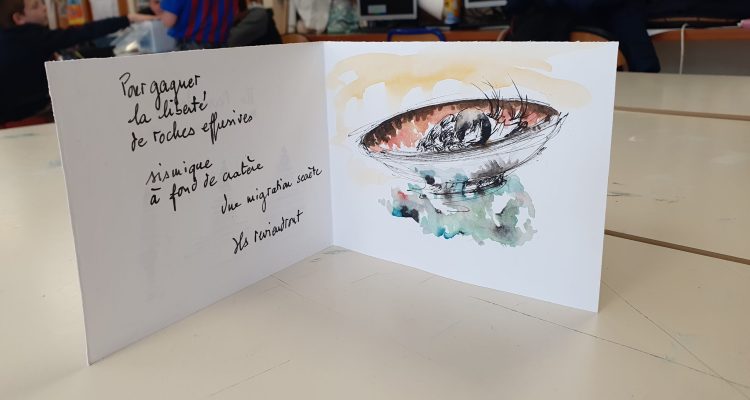 Pour gagner
la liberté
de roches effusives
sismique
à fond de cratère
Une migration secrète
Ils reviendront